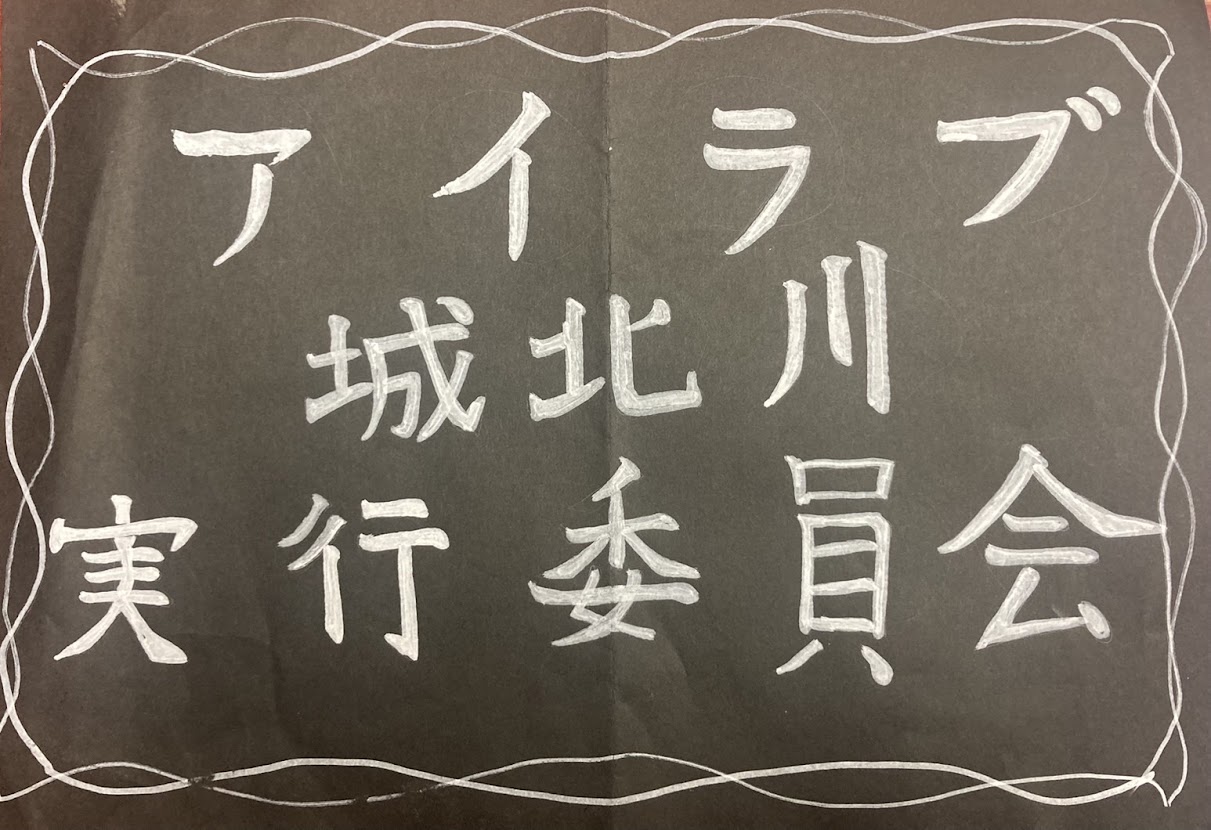 アイラブ
城北川
実行委員会